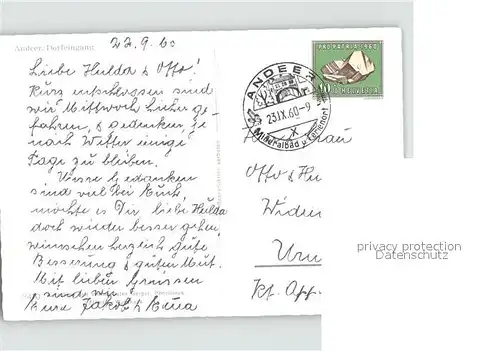 Andeer, Dorfeingang
22.9.60
Liebe Hulda & Otto!
Kurz entschlossen sind
wir Mittwoch hieher ge-
fahren, & gedenken je
nach Wetter einige
Tage zu bleiben.
Unsere Gedanken
sind viel bei Euch
möchte es Dir liebe Hulda
doch wieder besser gehen,
wünschen herzlich gute
Besserung & guten Mut.
Mit lieben Grüssen
sind wir
Eure Jakob &
PRO PATRIA 1960
10 HELVETIA
ANDEER
23.IX.60-9
Mineralbad u. Ferienort
Otto & Hu
Widen
Kt. App.
privacy protection
Datenschutz